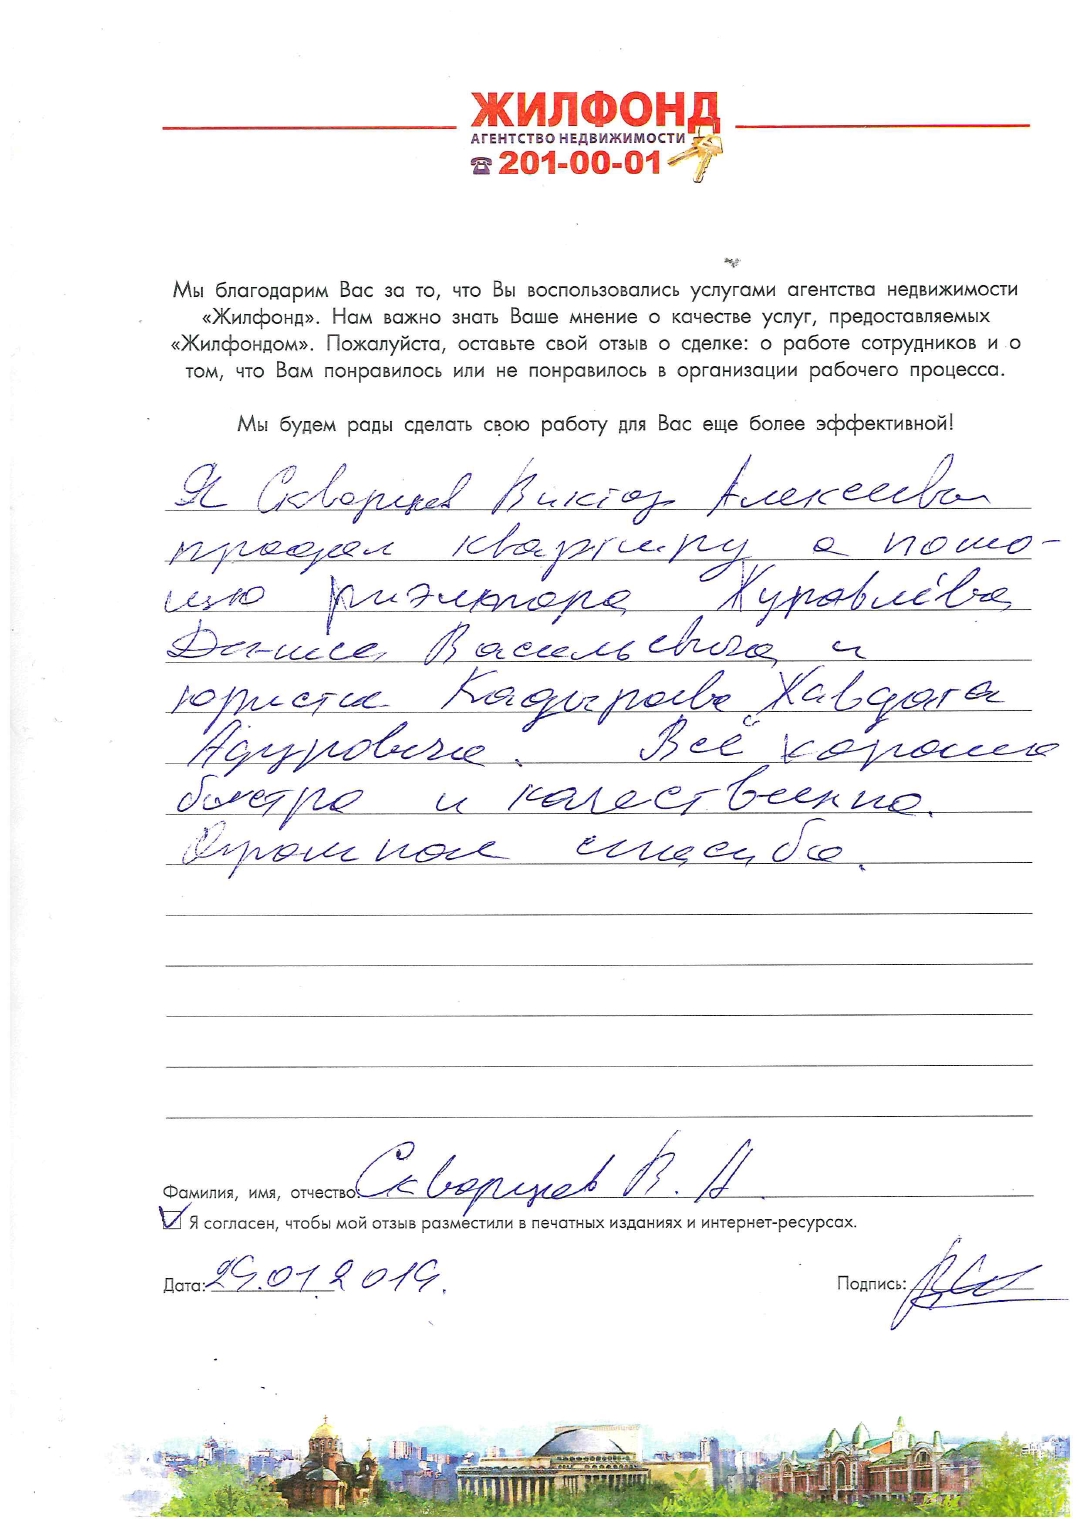 ЖИЛФОНД
АГЕНТСТВО НЕДВИЖИМОСТИ
☎ 201-00-01
Мы благодарим Вас за то, что Вы воспользовались услугами агентства недвижимости
«Жилфонд». Нам важно знать Ваше мнение о качестве услуг, предоставляемых
«Жилфондом». Пожалуйста, оставьте свой отзыв о сделке: о работе сотрудников и о
том, что Вам понравилось или не понравилось в организации рабочего процесса.
Мы будем рады сделать свою работу для Вас еще более эффективной!
Я Скворцов Виктор Алексееви
продал квартиру с помо-
щю риэлтора Журавлёва
Дениса Васильевича и
юриста Кадырова Жавдата
Всё хорошо
быстро и качественно.
Огромное спасибо.
Фамилия, имя, отчество: Скворцов В. А.
Я согласен, чтобы мой отзыв разместили в печатных изданиях и интернет-ресурсах.
Дата: 29.01.2019. Подпись: